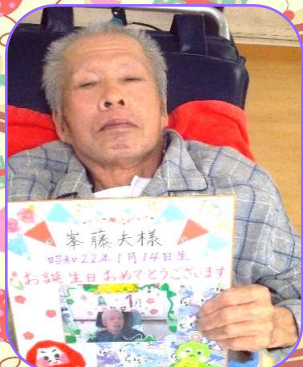 峯藤夫様
昭和22年1月14日生
お誕生日おめでとうございます